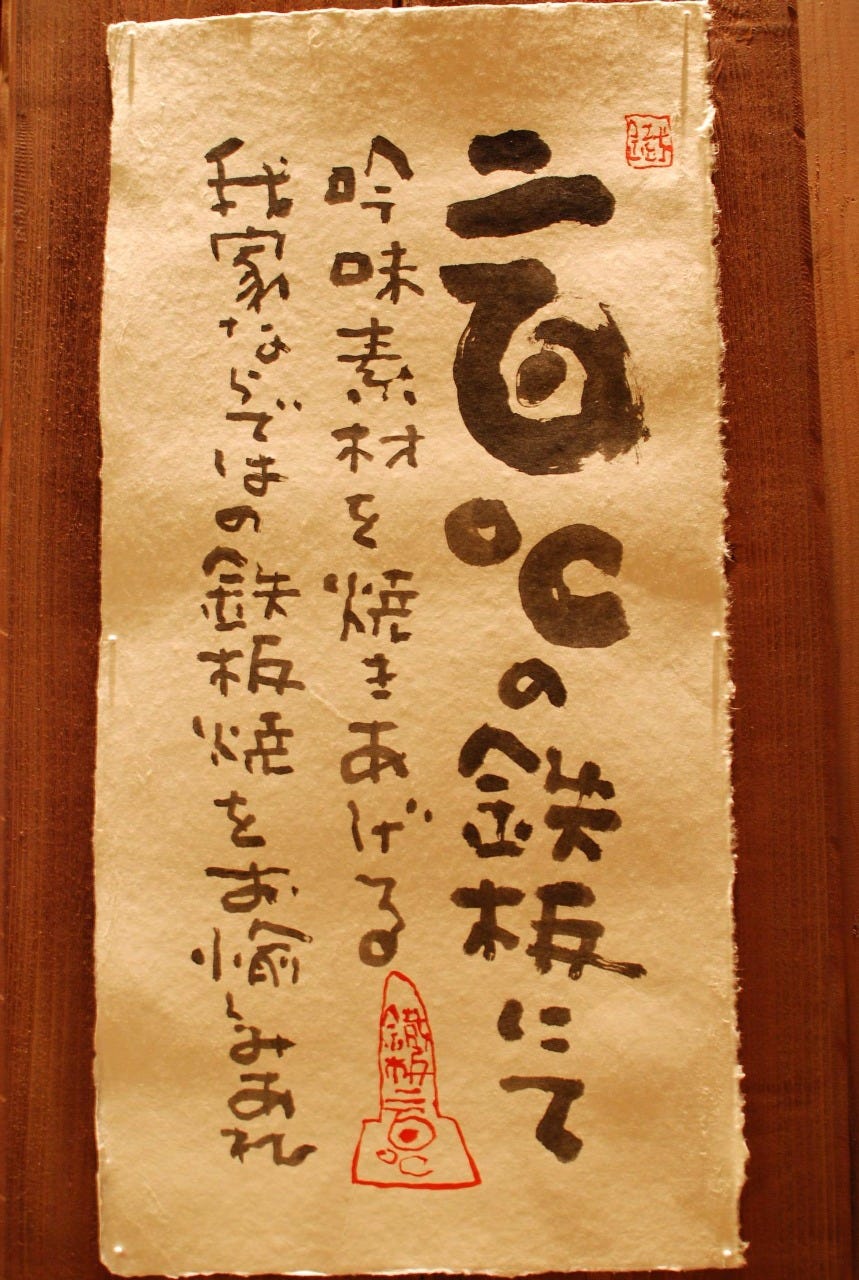 二百℃の鉄板にて
吟味素材を焼きあげる
我家ならではの鉄板焼をお愉しみあれ
鐵
鐵板二百℃